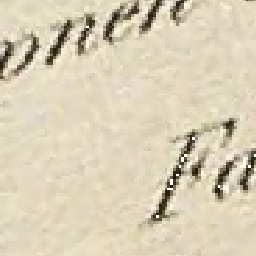 onen
Fa